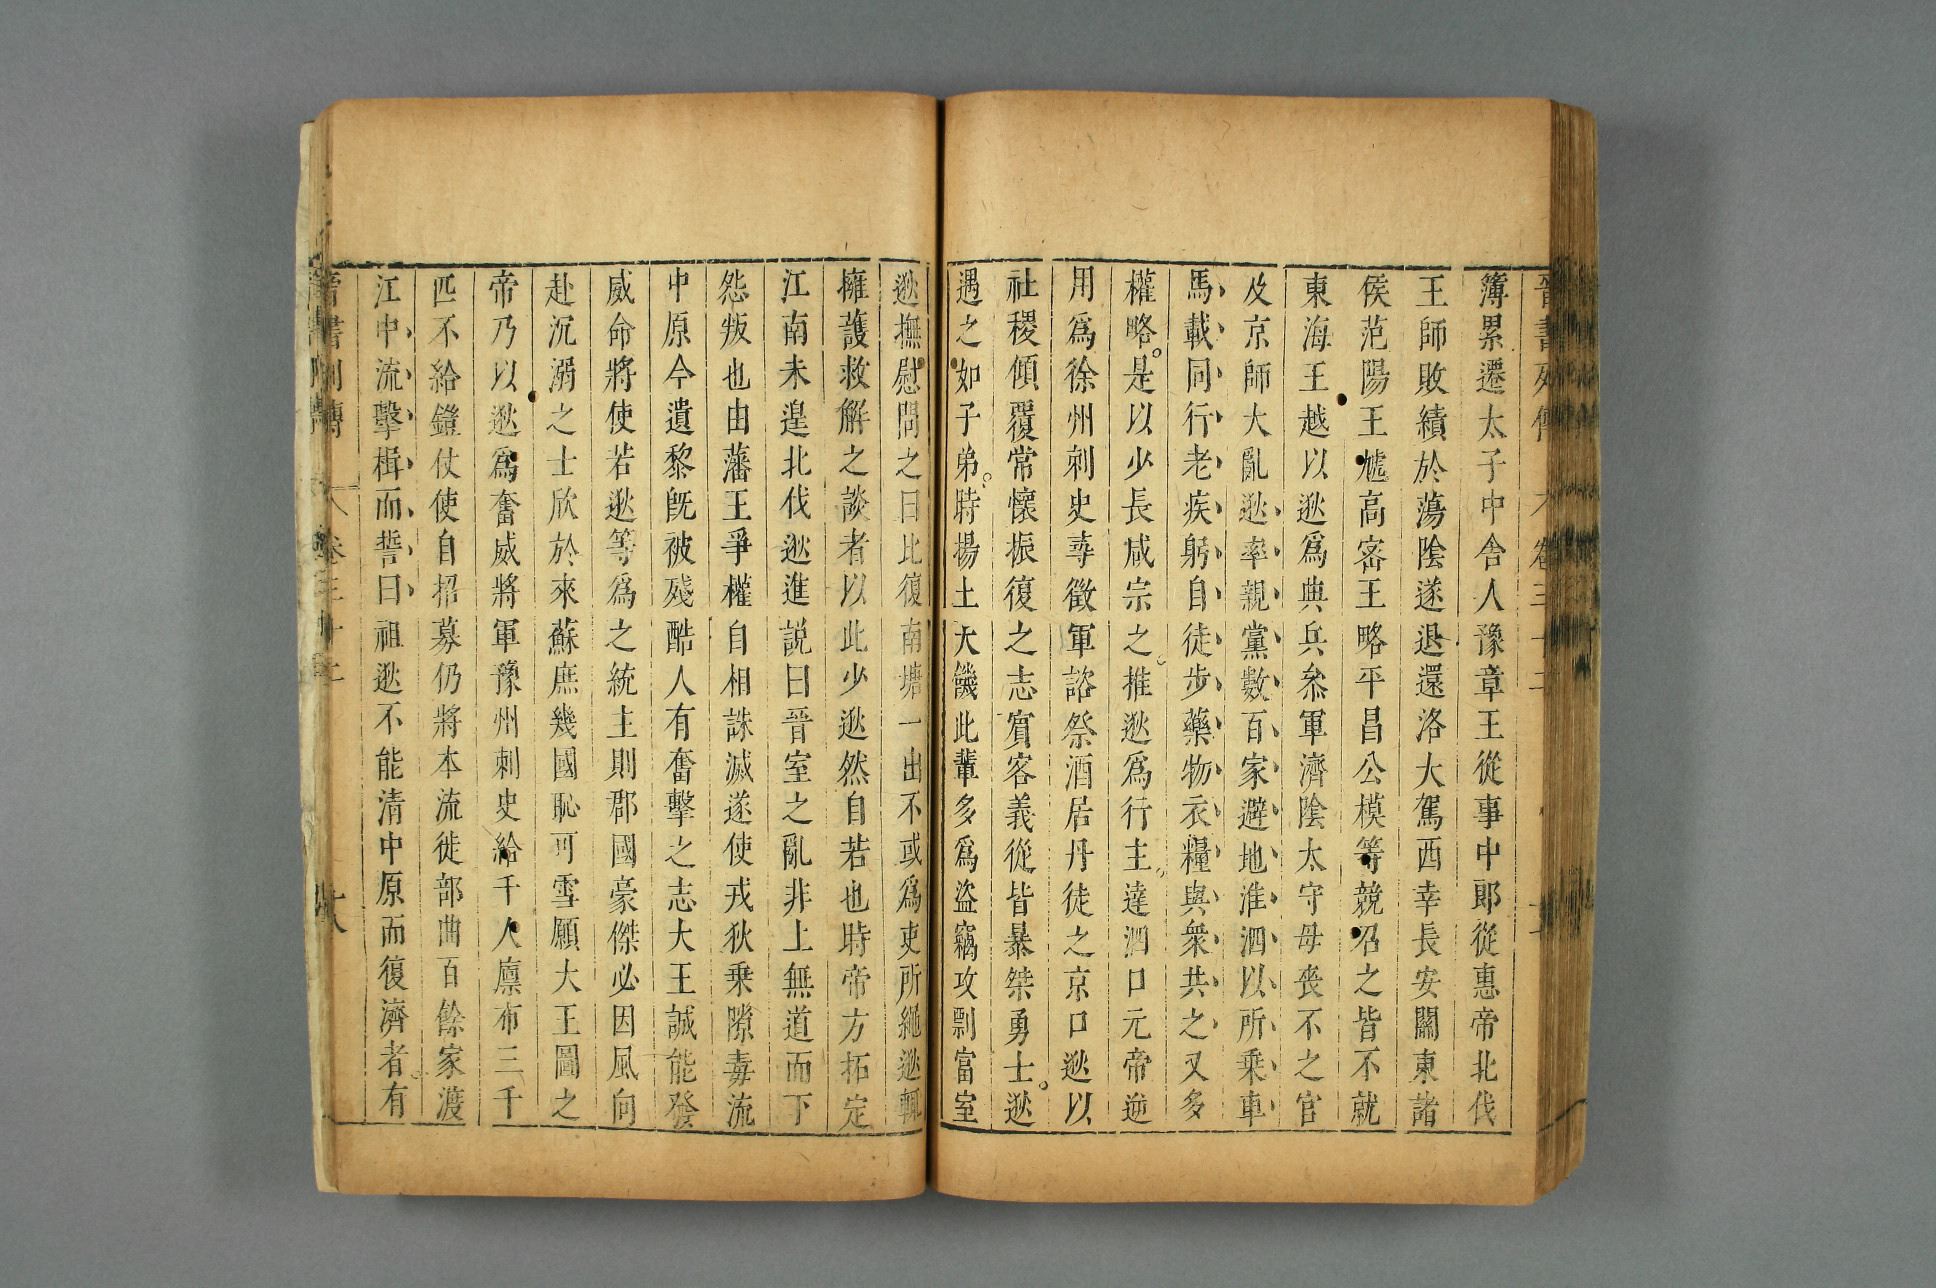 晉書列傳 卷三十二
簿累遷太子中舍人豫章王從事中郎從惠帝北伐
王師敗績於蕩陰遂退還洛大駕西幸長安關東諸
侯范陽王虓高密王略平昌公模等競召之皆不就
東海王越以逖爲典兵叅軍濟陰太守母喪不之官
及京師大亂逖率親黨數百家避地淮泗以所乗車
馬載同行老疾躬自徒步藥物衣糧與衆共之又多
權略是以少長咸宗之推逖爲行主達泗口元帝逆
用爲徐州刺史尋徵軍諮祭酒居丹徒之京口逖以
社稷傾覆常懷振復之志賓客義從皆暴桀勇士逖
遇之如子弟時揚土大饑此輩多爲盜竊攻剽富室
逖撫慰問之曰比復南塘一出不或爲吏所繩逖輒
擁護救解之談者以此少逖然自若也時帝方拓定
江南未遑北伐逖進説曰晉室之亂非上無道而下
怨叛也由藩王爭權自相誅滅遂使戎狄乗隙毒流
中原今遺黎旣被殘酷人有奮擊之志大王誠能發
威命將使若逖等爲之統主則郡國豪傑必因風向
赴沉溺之士欣於來蘇庶幾國恥可雪願大王圖之
帝乃以逖爲奮威將軍豫州刺史給千人廪布三千
匹不給鎧仗使自招募仍將本流徙部曲百餘家渡
江中流擊楫而誓曰祖逖不能清中原而復濟者有
晉書列傳 卷三十二 十八